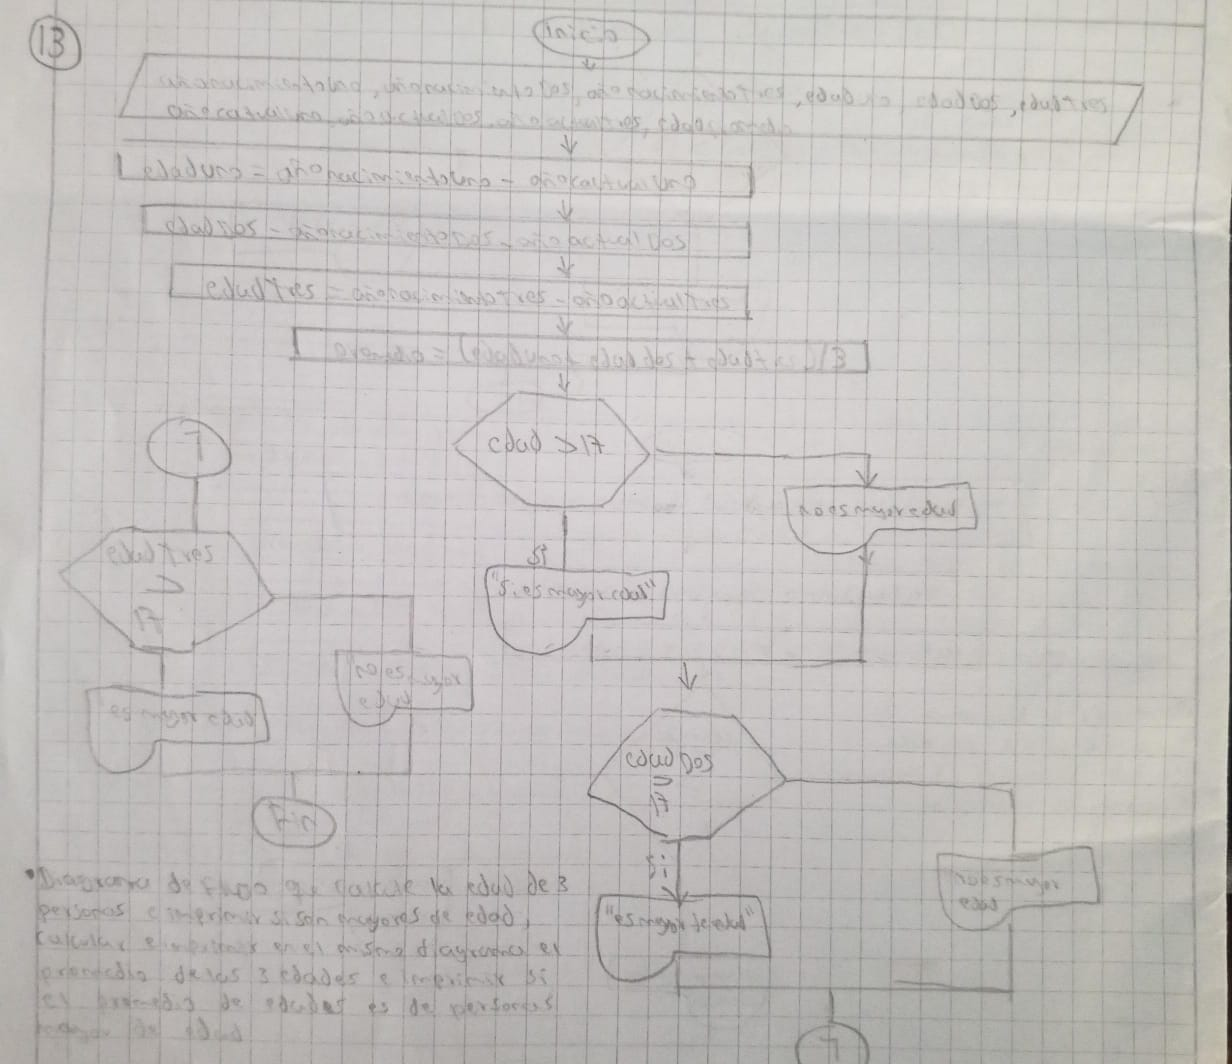 13
inicio
añonacimientoUno, añonacimientoDos, añonacimientoTres, edadUno, edadDos, edadTres
añoactualUno, añoactualDos, añoactualTres,
edadUno = añonacimientoUno - añoactualUno
edadDos = añonacimientoDos - añoactualDos
edadTres = añonacimientoTres - añoactualTres
promedio = (edadUno + edadDos + edadTres)/3
edad > 17
no es mayor edad
Si
"Si es mayor edad"
edadDos
>
17
Si
"es mayor de edad"
no es mayor
edad
7
7
edadTres
>
17
"no es mayor
edad
"es mayor edad
Fin
• Diagrama de flujo q. calcule la edad de 3
personas e imprimir si son mayores de edad,
calcular e imprimir en el mismo diagrama el
promedio de las 3 edades e imprimir si
el promedio de edades es de personas
mayor de edad